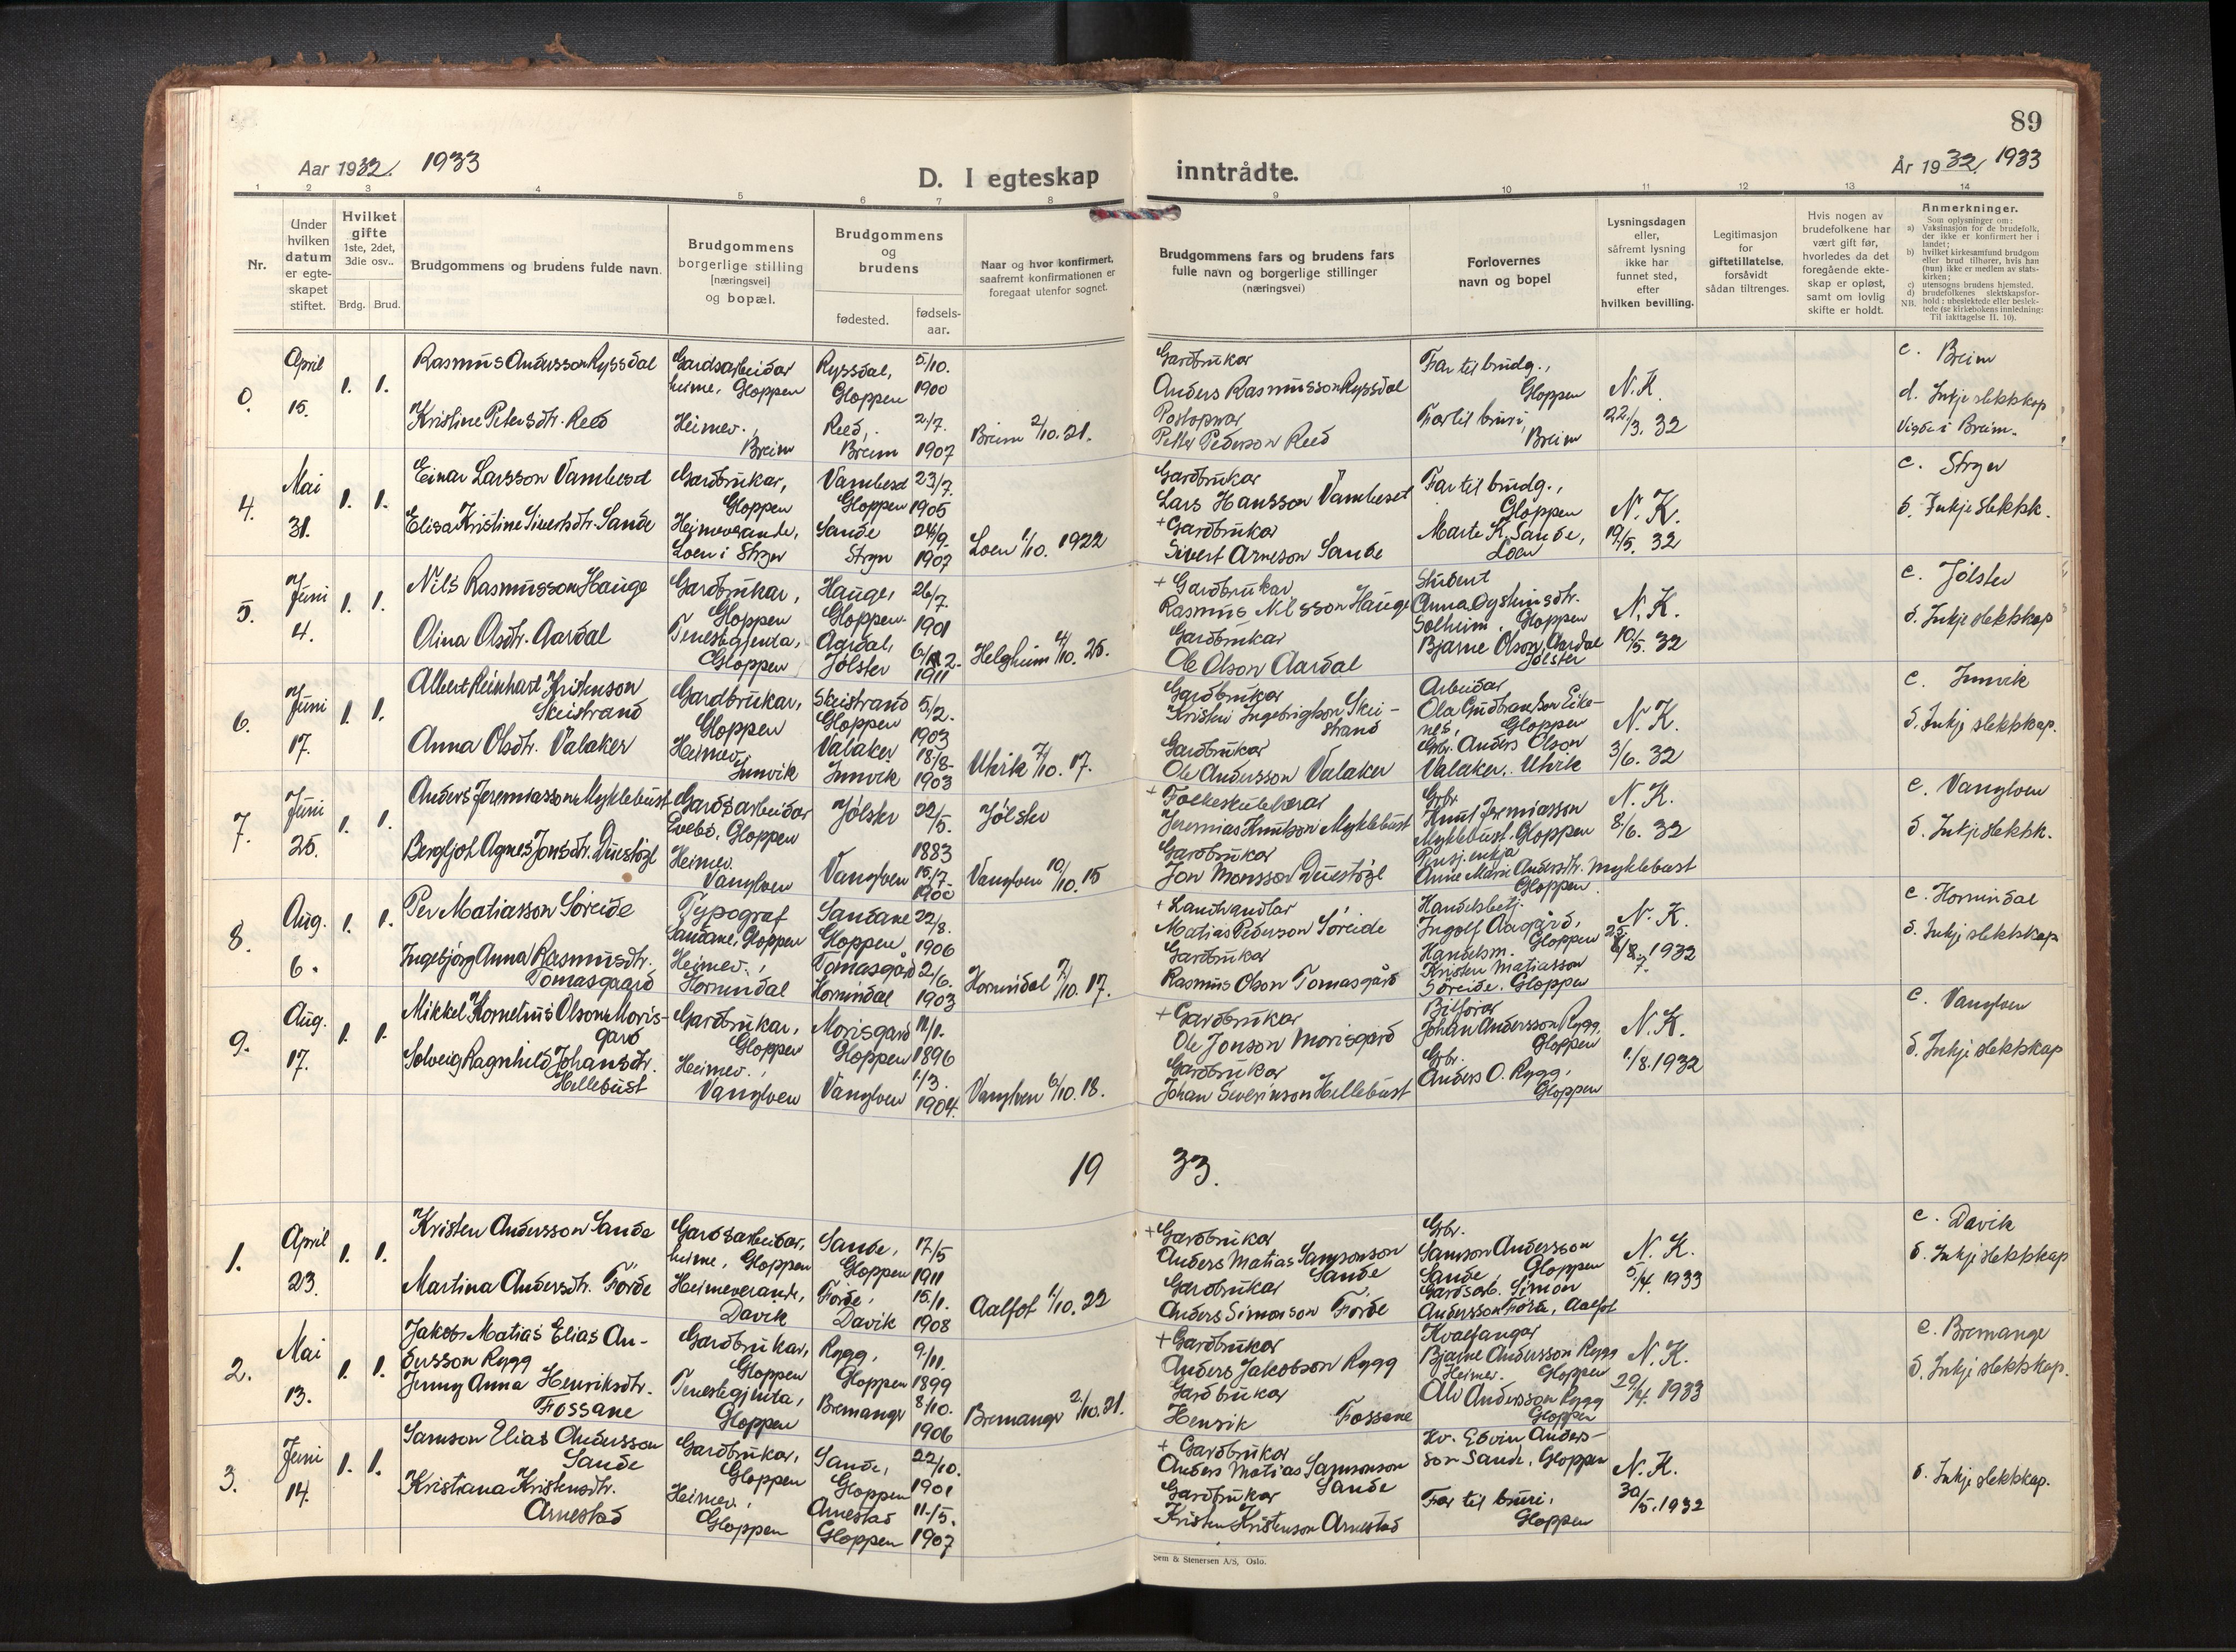 89
Aar 1932. 1933
D. I egteskap inntrådte.
År 1932. 1933
1 2 3 4 5 6 7 8 9 10 11 12 13 14
Nr.
Under
hvilken
datum
er egte-
skapet
stiftet.
Hvilket
gifte
1ste, 2det,
3die osv..
Brdg. Brud.
Brudgommens og brudens fulde navn.
Brudgommens
borgerlige stilling
[næringsvei]
og bopæl.
Brudgommens
og
brudens
fødested.
fødsels-
aar.
Naar og hvor konfirmert,
saafremt konfirmationen er
foregaat utenfor sognet.
Brudgommens fars og brudens fars
fulle navn og borgerlige stillinger
(næringsvei)
Forlovernes
navn og bopel
Lysningsdagen
eller,
såfremt lysning
ikke har
funnet sted,
efter
hvilken bevilling.
Legitimasjon
for
giftetillatelse,
forsåvidt
sådan tiltrenges.
Hvis nogen av
brudefolkene har
vært gift før,
hvorledes da det
foregående ekte-
skap er opløst,
samt om lovlig
skifte er holdt.
Anmerkninger.
Som oplysninger om:
a) Vaksinasjon for de brudefolk,
der ikke er konfirmert her i
landet;
b) hvilket kirkesamfund brudgom
eller brud tilhører, hvis han
(hun) ikke er medlem av stats-
kirken;
c) utensogns brudens hjemsted.
d) brudefolkenes slektskapsfor-
hold: ubeslektede eller beslek-
tede (se kirkebokens innledning:
NB. Til iakttagelse II. 10).
April
15.
1. 1.
Rasmus Andersson Ryssdal
Kristine Petersdtr. Reed
Gardsarbeidar
heime, Gloppen
Heimev.,
Breim
Ryssdal,
Gloppen
Reed,
Breim
5/10.
1900
2/7.
1907
Breim 2/10.21.
Gardbrukar
Anders Rasmusson Ryssdal
Postopnar
Petter Pederson Reed
Far til brudg.,
Gloppen
Far til bruri,
Breim
N. K.
22/3. 32
c. Breim
d. Inkje slektskap
Vigde i Breim.
4.
Mai
31.
1. 1.
Einar Larsson Vambeset
Elisa Kristine Sivertsdtr. Sande
Gardbrukar,
Gloppen
Heimeverande,
Loen i Stryn
Vambeset
Gloppen
Sande
Stryn
23/7.
1905
24/9.
1907
Loen 1/10. 1922
Gardbrukar
Lars Hansson Vambeset
+ Gardbrukar
Sivert Arneson Sande
Far til brudg.,
Gloppen
Marte K. Sande,
Loen
N. K.
19/5. 32
c. Stryn
d. Inkje slektsk.
5.
Juni
4.
1. 1.
Nils Rasmusson Hauge
Olina Olsdtr. Aardal
Gardbrukar,
Gloppen
Tenestegjenta,
Gloppen
Hauge,
Gloppen.
Aardal,
Jølster
26/7.
1901
1911
Helgheim 4/10. 25.
+ Gardbrukar
Rasmus Nilsson Hauge
Gardbrukar
Ole Olson Aardal
Student
Anna Øysteinsdtr.
Solheim, Gloppen
Bjarne Olson Aardal
Jølster
N. K.
10/5. 32
c. Jølster
d. Inkje slektskap
6.
Juni
17.
1. 1.
Albert Reinhart Kristenson
Skeistrand
Anna Olsdtr. Valaker
Gardbrukar,
Gloppen
Heimev.
Innvik
Skeistrand
Gloppen
Valaker
Innvik
5/2.
1903
18/8.
1903
Utvik 7/10. 17.
Gardbrukar
Kristen Ingebrigtson Skei-
strand
Gardbrukar
Ole Andersson Valaker
Arbeidar
Ola Gudbrandson Eike-
nes, Gloppen
Gbr. Anders Olson
Valaker, Utvik
N. K.
3/6. 32
c. Innvik
d. Inkje slektskap.
7.
Juni
25.
1. 1.
Anders Jeremiasson Myklebust
Bergljot Agnes Jonsdtr. Duestøyl
Gardsarbeidar
Evebø, Gloppen
Heimev.
Vanylven
Jølster
Vanylven
22/5.
1883
15/7.
1900
Jølster
Vanylven 10/10. 15
+ Folkeskulelærar
Jeremias Knutson Myklebust
Gardbrukar
Jon Monsson Duestøyl
Gbr.
Knut Jeremiasson
Myklebust. Gloppen
Pensj. enkja
Anne Marie Andersdtr. Myklebust
Gloppen.
N. K.
8/6. 32
c. Vanylven
d. Inkje slektsk.
8.
Aug.
6.
1. 1.
Per Matiasson Søreide
Ingebjørg Anna Rasmusdtr.
Tomasgaard
Typograf
Sandane, Gloppen
Heimev.,
Hornindal
Sandane
Gloppen
Tomasgård
Hornindal
22/8.
1906
2/6.
1903
Hornindal 7/10. 17.
+ Landhandlar
Matias Pederson Søreide
Gardbrukar
Rasmus Olson Tomasgård
Handelsbetj.
Ingolf Aagård,
Gloppen
Handelsm.
Kristen Matiasson
Søreide. Gloppen
N. K.
25/7. 1932
c. Hornindal
d. Inkje slektskap
9.
Aug.
17.
1. 1.
Mikkel Kornelius Olson Moris-
gard
Solveig Ragnhild Johansdtr.
Hellebust
Gardbrukar,
Gloppen
Heimev.,
Vanylven
Morisgard
Gloppen
Vanylven
11/1.
1896
1/3.
1904.
Vanylven 6/10. 18.
+ Gardbrukar
Ole Jonson Morisgard
Gardbrukar
Johan Severinson Hellebust
Bilførar
Johan Andersson Rygg,
Gloppen
Gbr.
Anders O. Rygg,
Gloppen
N. K.
1/8. 1932
c. Vanylven
d. Inkje slektskap
19 33.
1.
April
23.
1. 1.
Kristen Andersson Sande
Martina Andersdtr. Førde
Gardsarbeidar,
heime, Gloppen
Heimeverande,
Davik
Sande,
Gloppen
Førde,
Davik
17/5
1911
15/1.
1908
Aalfot 1/10. 22
+ Gardbrukar
Anders Matias Samsonson
Sande
Gardbrukar
Anders Simonson Førde
Gbr.
Samson Andersson
Sande, Gloppen
Gardsarb. Simon
Andersson Førde, Aalfot
N. K.
5/4. 1933
c. Davik
d. Inkje slektskap
2.
Mai
13.
1. 1.
Jakob Matias Elias An-
dersson Rygg
Jenny Anna Henriksdtr.
Fossane
Gardbrukar,
Gloppen
Tenestegjenta,
Gloppen
Rygg,
Gloppen
Bremanger
9/11.
1899
8/10.
1906
Bremanger 2/10. 21.
+ Gardbrukar
Anders Jakobson Rygg
Gardbrukar
Henrik Fossane
Kvalfangar
Bjarne Andersson Rygg
Heimev. Gloppen
Andersson Rygg
Gloppen
N. K.
29/4. 1933
c. Bremanger
d. Inkje slektskap.
3.
Juni
14.
1. 1.
Samson Elias Andersson
Sande
Kristiana Kristensdtr.
Arnestad
Gardbrukar,
Gloppen
Heimev.,
Gloppen
Sande,
Gloppen
Arnestad
Gloppen
22/10.
1901
11/5.
1907
+ Gardbrukar
Anders Matias Samsonson
Sande
Gardbrukar
Kristen Kristenson Arnestad
Edvin Anders-
son Sande, Gloppen
Far til bruri,
Gloppen
N. K.
30/5. 1932
d. Inkje slektskap.
Sem & Stenersen A/S, Oslo.